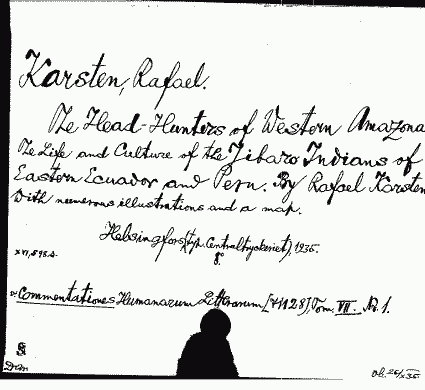 Karsten, Rafael.
The Head-Hunters of Western Amazona
The Life and Culture of the Jibaro Indians of
Eastern Ecuador and Peru. By Rafael Karsten
With numerous illustrations and a map.
Helsingfors (typ. Centraltryckeriet), 1935.
8°.
XVI, 598 s.
Commentationes Humanarum Litterarum [41128], Tom. VII. No 1.